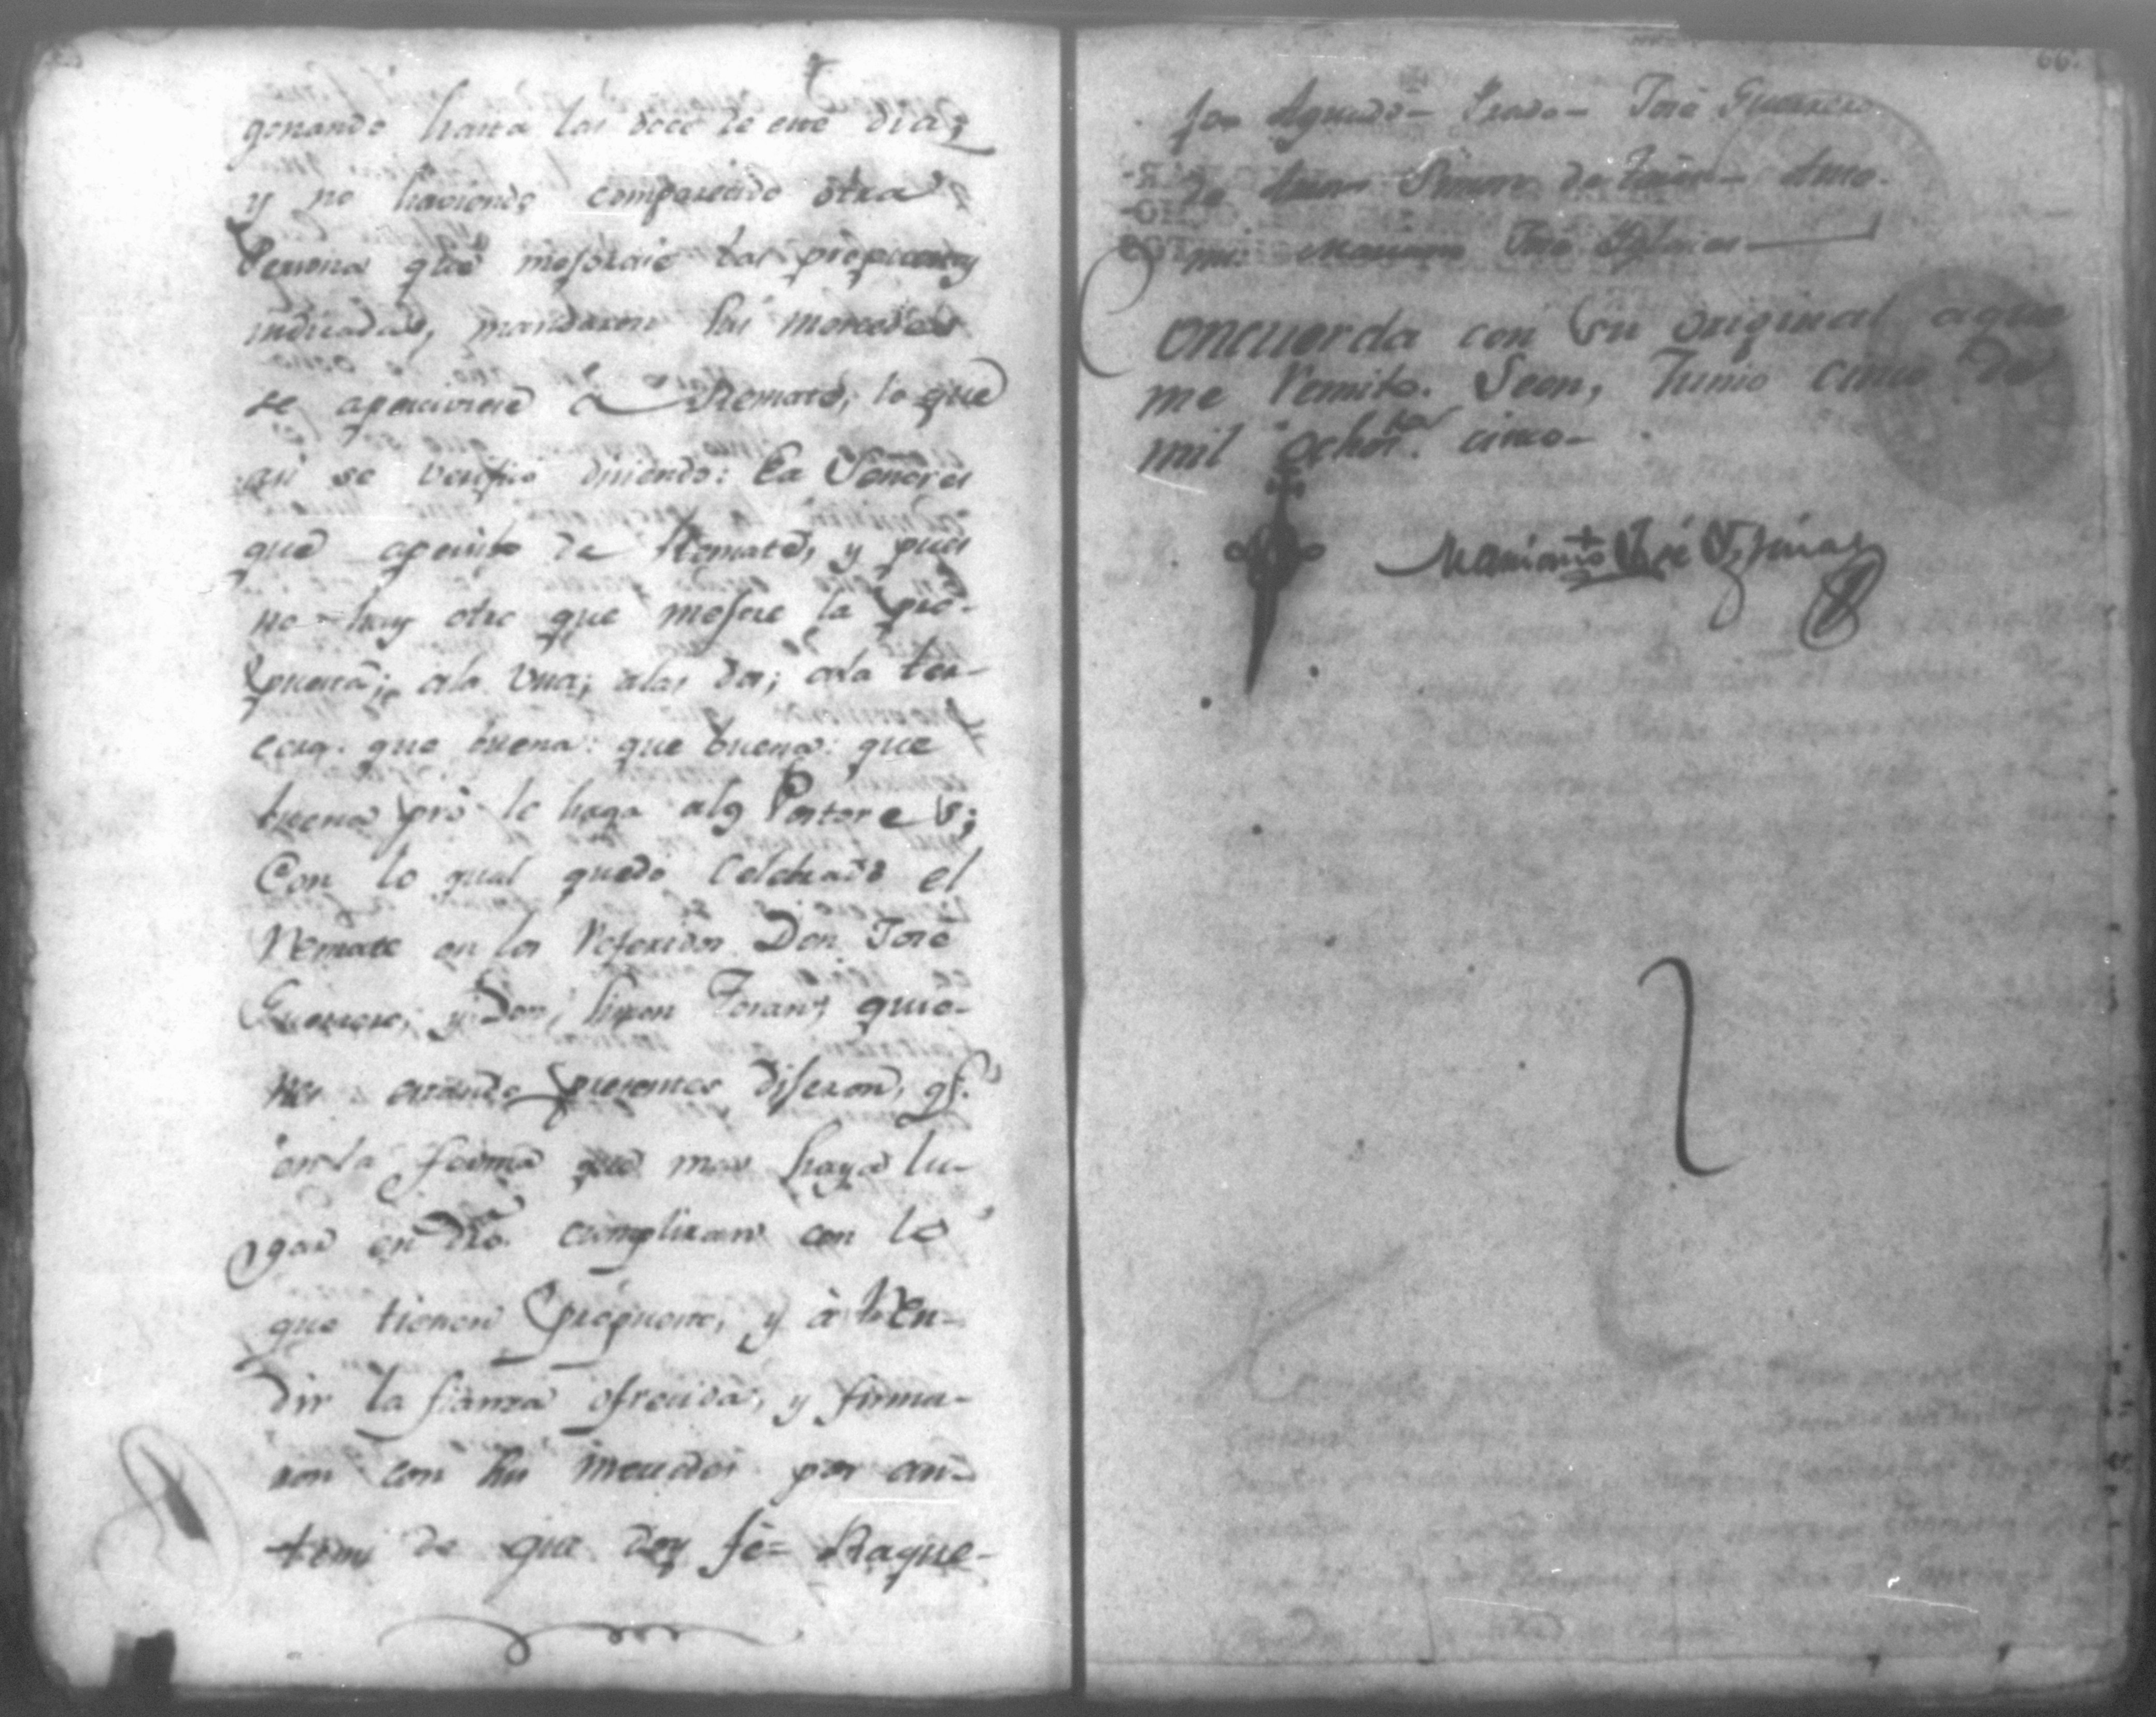 gonando hasta las doce de este dia;
y no haviendo comparecido otra
Persona que mejorase las propuestas
indicadas, mandaron sus mercedes
se aperciviese à Remate, lo que
asi se verifico diciendo: Ea Señores
que apercibo de Remate, y pues
no hay otro que mejore la pro-
puesta; ala una; alas dos; ala ter-
cera. que buena: que buena: que
buena pro le haga alos Postores;
Con lo qual quedó Celebrado el
Remate en los Referidos Don José
Guerrero, y Don
nes estando presentes dijeron, qe.
en la forma que mas haya lu-
gar en dro. cumpliran con lo
que tienen propuesto, y à Ren-
dir la fianza ofrecida, y firma-
ron con sus mercedes por an-
temi de que doy fè= Raque-
66.
jo= Aguado= Prado= José Guerrero
de
mi: Mariano José Yglesias
Concuerda con su original aque
me Remito. Leon, Junio cinco de
mil ochostos. cinco-
Mariano José Yglesias